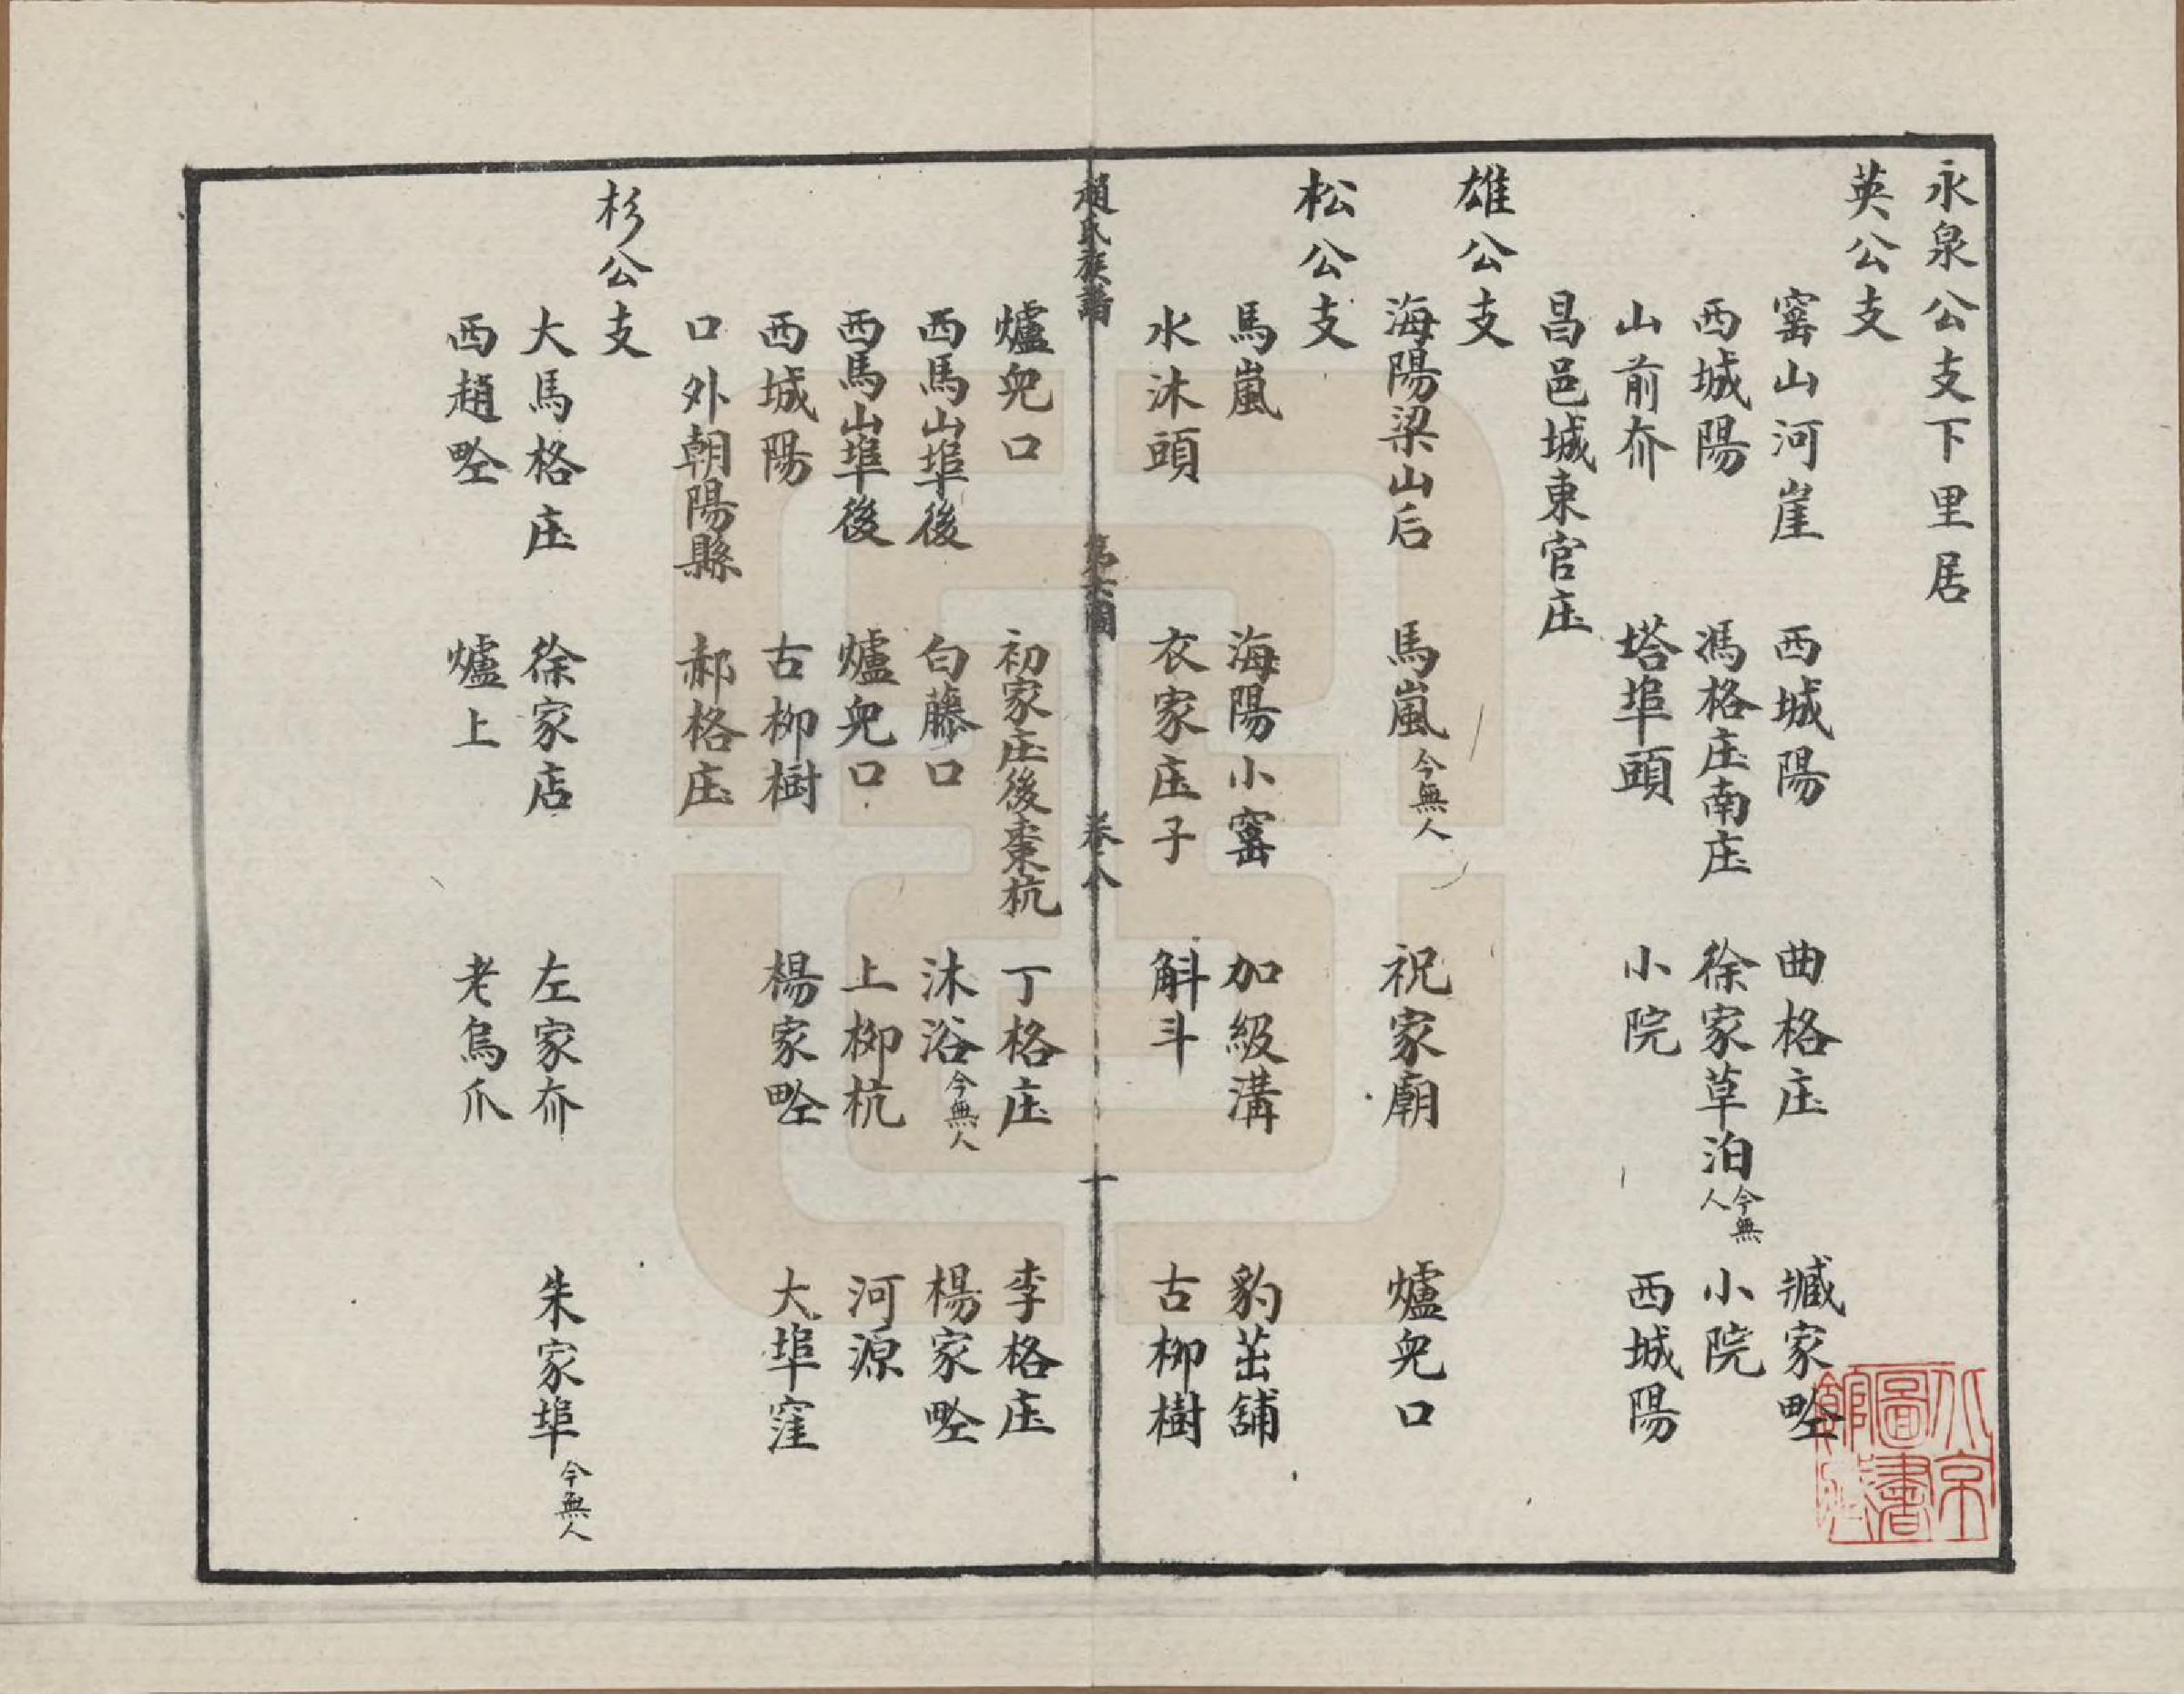 永泉公支下里居
英公支
窰山河崖 西城陽 曲格庄 臧家夼
西城陽 馮格庄南庄 徐家草泊今無人 小院
山前夼 塔埠頭 小院 西城陽
昌邑城東官庄
雄公支
海陽梁山后 馬嵐今無人 祝家廟 爐兒口
松公支
馬嵐 海陽小窰 加級溝 豹茁舖
水沐頭 衣家庄子 斛斗 古柳樹
趙氏族譜 卷八 一
爐兒口 初家庄後棗杭 丁格庄 李格庄
西馬山埠後 白藤口 沐浴今無人 楊家㽏
西馬山埠後 爐兒口 上柳杭 河源
西城陽 古柳樹 楊家㽏 大埠窪
口外朝陽縣 郝格庄
杉公支
大馬格庄 徐家店 左家夼 朱家埠今無人
西趙㽏 爐上 老鳥爪
北京圖書館藏